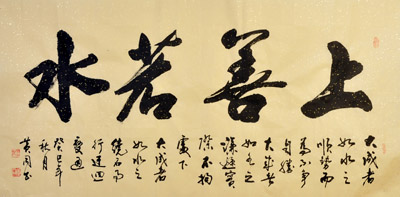 上善若水
大成者
如水之
順勢而
為不爭
自勝
大成者
如水之
謙遜實
際不拘
處下
大成者
如水之
繞石而
行迂迴
變通
癸巳年
秋月